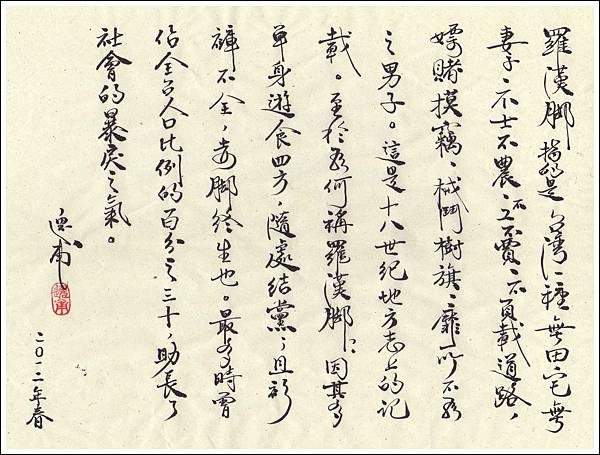 羅漢脚指的是台湾一種無田宅無
妻子、不士不農、不工不賈、不負載道路,
嫖賭摸竊、械鬥樹旗、靡所不為
之男子。這是十八世紀地方志上的記
載。至於為何稱羅漢脚;因其多
單身遊食四方,隨處結黨;且衫
褲不全,赤脚終生也。最多時曾
佔全台人口比例的百分之三十,助長了
社會的暴戾之氣。
二〇一二年春